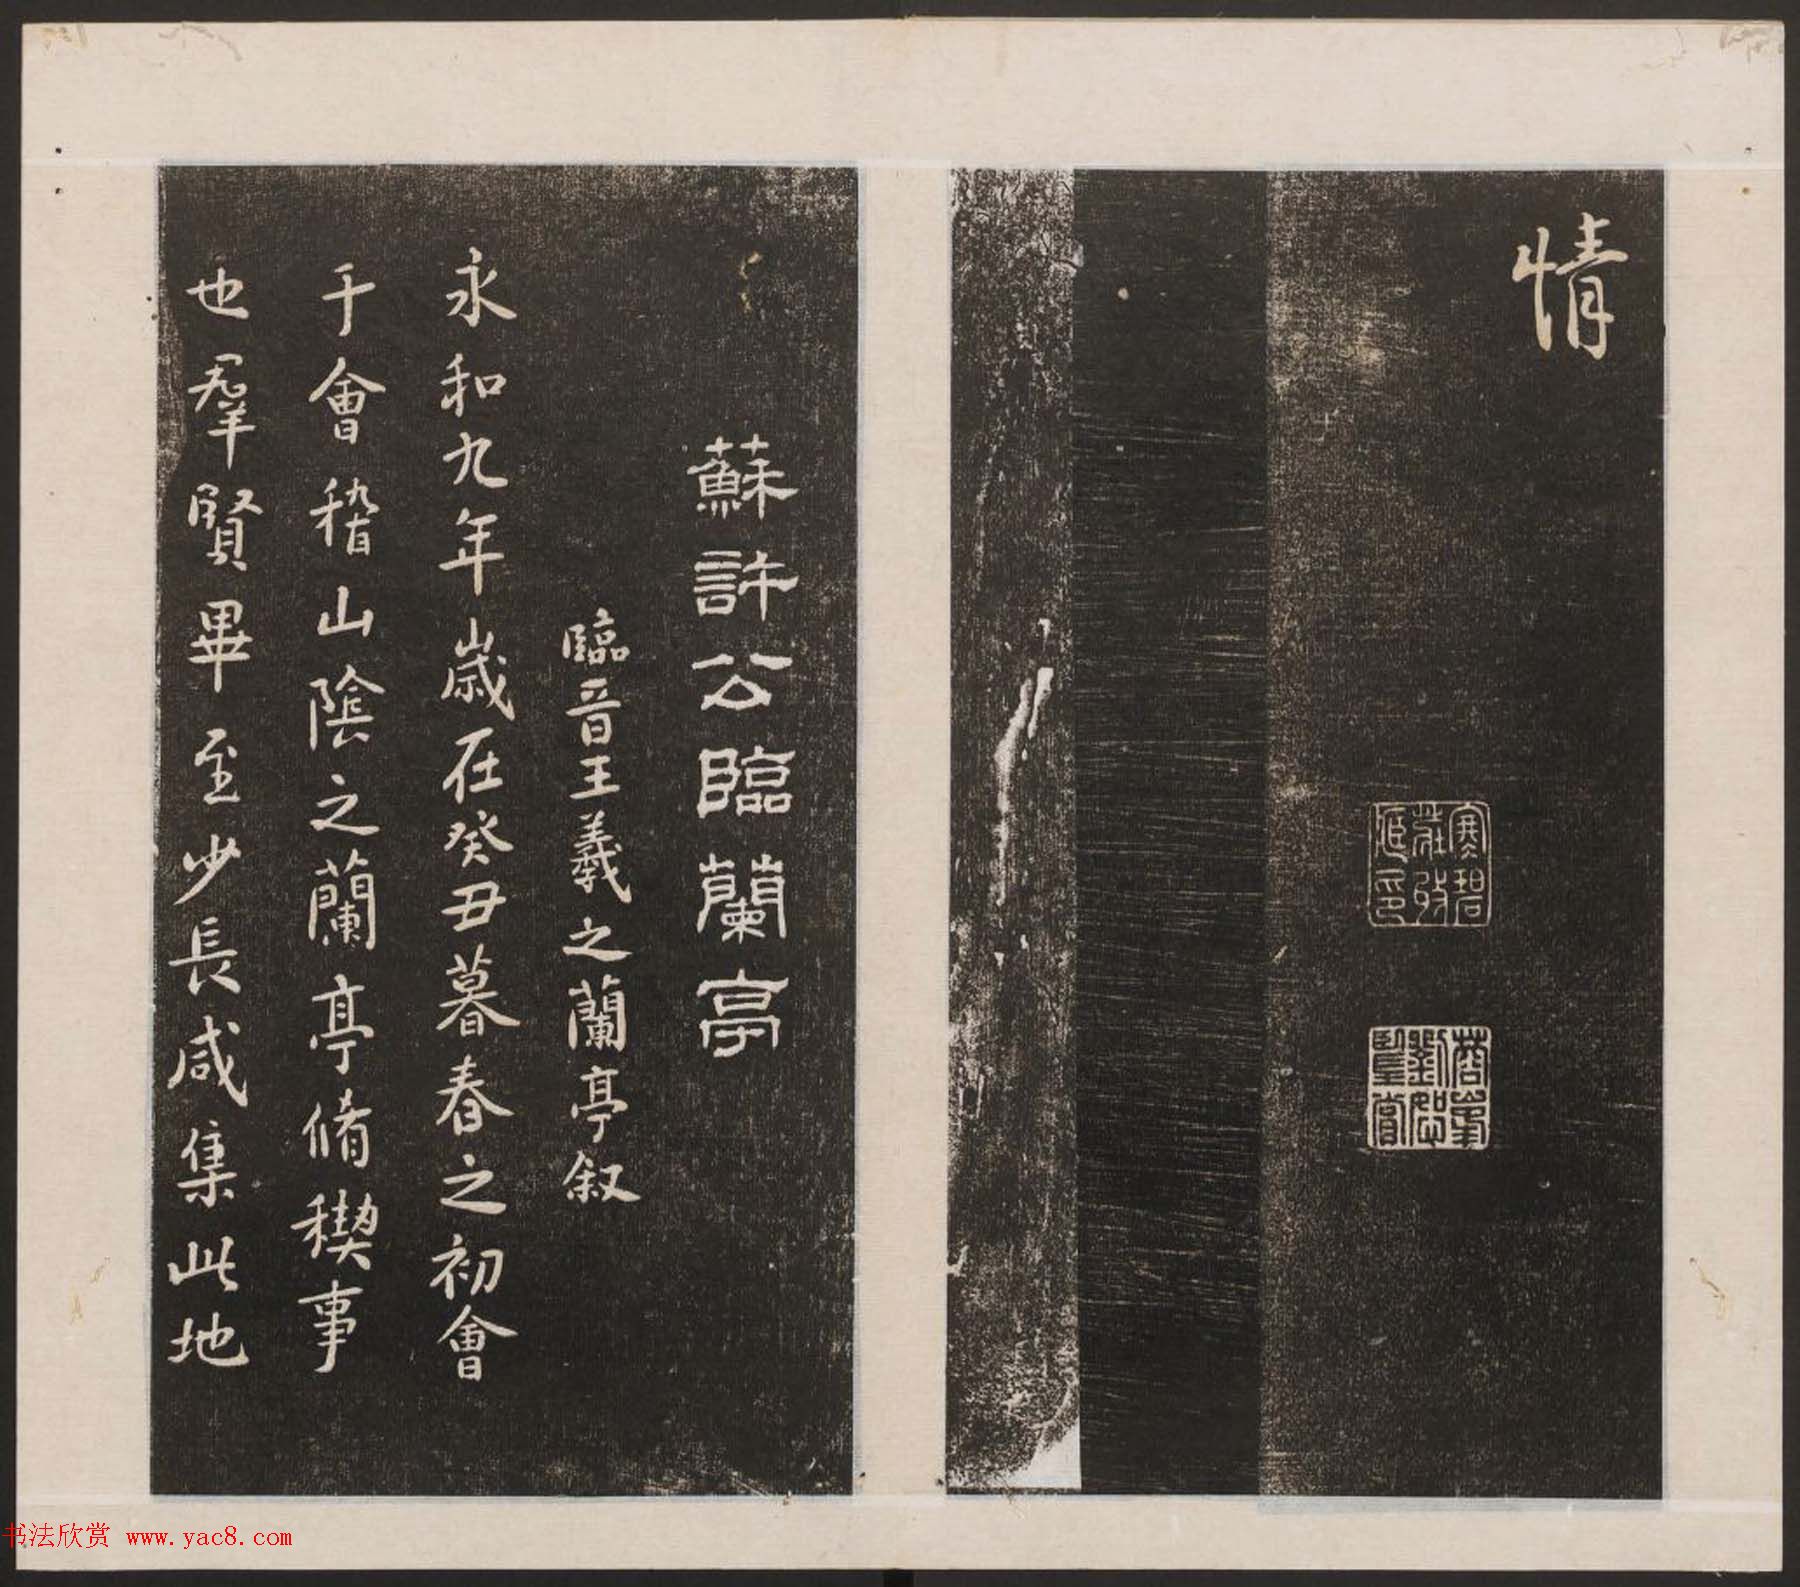 情
蓉峯劉恕鑒賞
蘇許公臨蘭亭
臨晉王羲之蘭亭叙
永和九年歲在癸丑暮春之初會
于會稽山陰之蘭亭脩稧事
也羣賢畢至少長咸集此地
书法欣赏 www.yac8.com